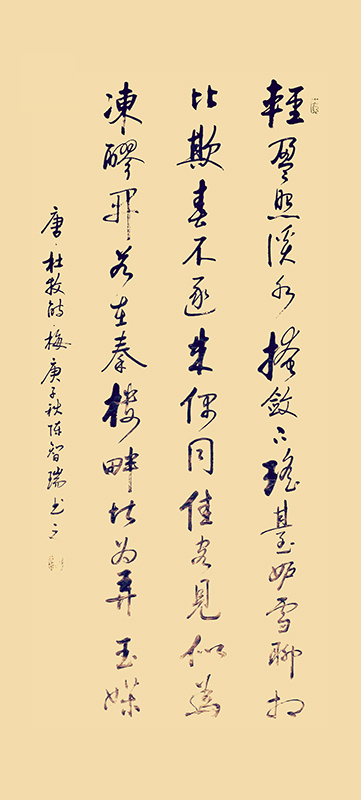 輕盈照溪水掩斂下瑤臺妒雪聊相
比欺春不逐來偶同佳客見似為
凍醪開若在秦樓畔堪為弄玉媒
唐·杜牧詩·梅庚子秋陳智瑞書之